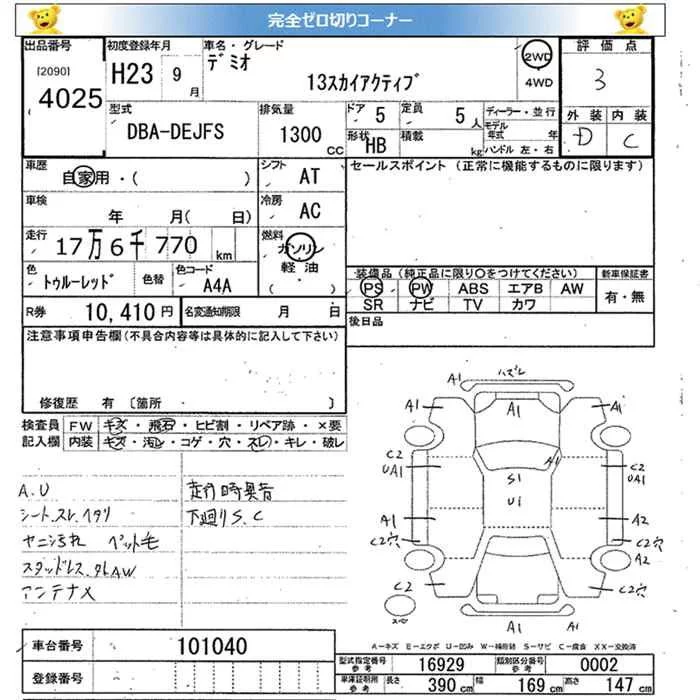 完全ゼロ切りコーナー
出品番号 初度登録年月 車名・グレード 評価点
[2090] 4025 H23 9月 デミオ 13スカイアクティブ 2WD 4WD 3
外装 内装
D C
型式 排気量 ドア 定員 ディーラー・並行
DBA-DEJFS 1300cc 5 5人 モデル年式 年
形状 HB 積載 kg ハンドル 左・右
車歴 自家用・( ) シフト AT セールスポイント (正常に機能するものに限ります)
車検 年 月( 日) 冷房 AC
走行 17万6千770km 燃料 ガソリン 軽油 ( )
色 トゥルーレッド 色替 色コード A4A
装備品 (純正品に限り〇をつけてください) 新車保証書
PS PW ABS エアB AW 有・無
SR ナビ TV カワ
R券 10,410円 名変通知期限 月 日
後日品
注意事項申告欄(不具合内容等は具体的に記入して下さい)
修復歴 有 〔箇所 ・ 〕
検査員 FW キズ・飛石・ヒビ割・リペア跡・×要
記入欄 内装 キズ・汚レ・コゲ・穴・スレ・キレ・破レ
A.U 走行時異音
シート.スレ.ヘタリ 下廻りS.C
ヤニ汚れ ペット毛
スタッドレス.外AW
アンテナX
ハズレ
A1
A1 A1 A1
A1
C2 UA1 S1 C2 UA1
U1
A1 A2
C2穴 C2穴
A2
C2 C2穴
スペ
A1 A1
A-キズ E-エクボ U-凹み W-補修跡 S-サビ C-腐食 XX-交換済
車台番号 101040
登録番号
型式指定番号 参考 16929 類別区分番号 参考 0002
車庫証明用 参考 長さ 390cm 幅 169cm 高さ 147cm